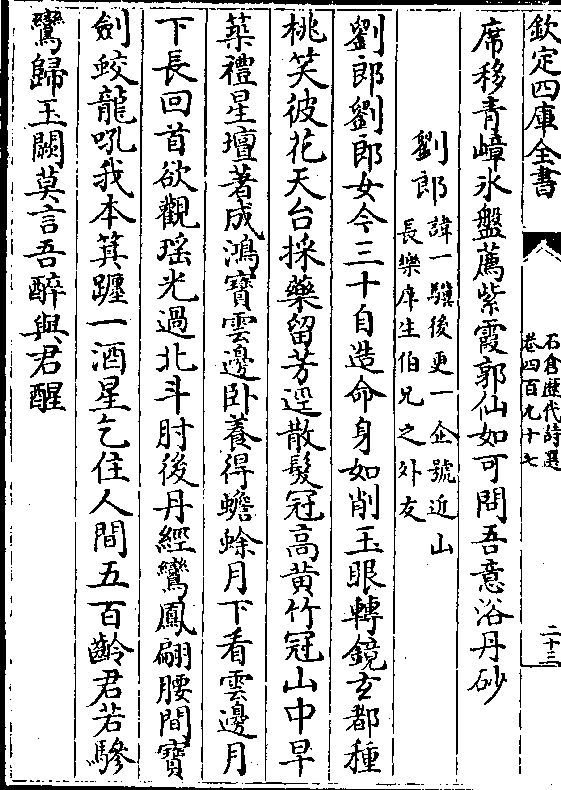 欽定四庫全書
石倉歷代詩選
卷四百九十七
二十三
席移青嶂氷盤薦紫霞郭仙如可問吾意浴丹砂
劉郎
諱一驥後更一企號近山
長樂庠生伯兄之外友
劉郎劉郎女今三十自造命身如削玉眼轉鏡玄都種
桃笑彼花天台採藥留芳逕散髮冠高黄竹冠山中早
葉禮星壇著成鴻寶雲邊卧養得蟾蜍月下看雲邊月
下長回首欲觀瑶光過北斗肘後丹經鸞鳳翩腰間寶
劍蛟龍吼我本箕躔一酒星乞住人間五百齡君若驂
鸞歸玉闕莫言吾醉與君醒